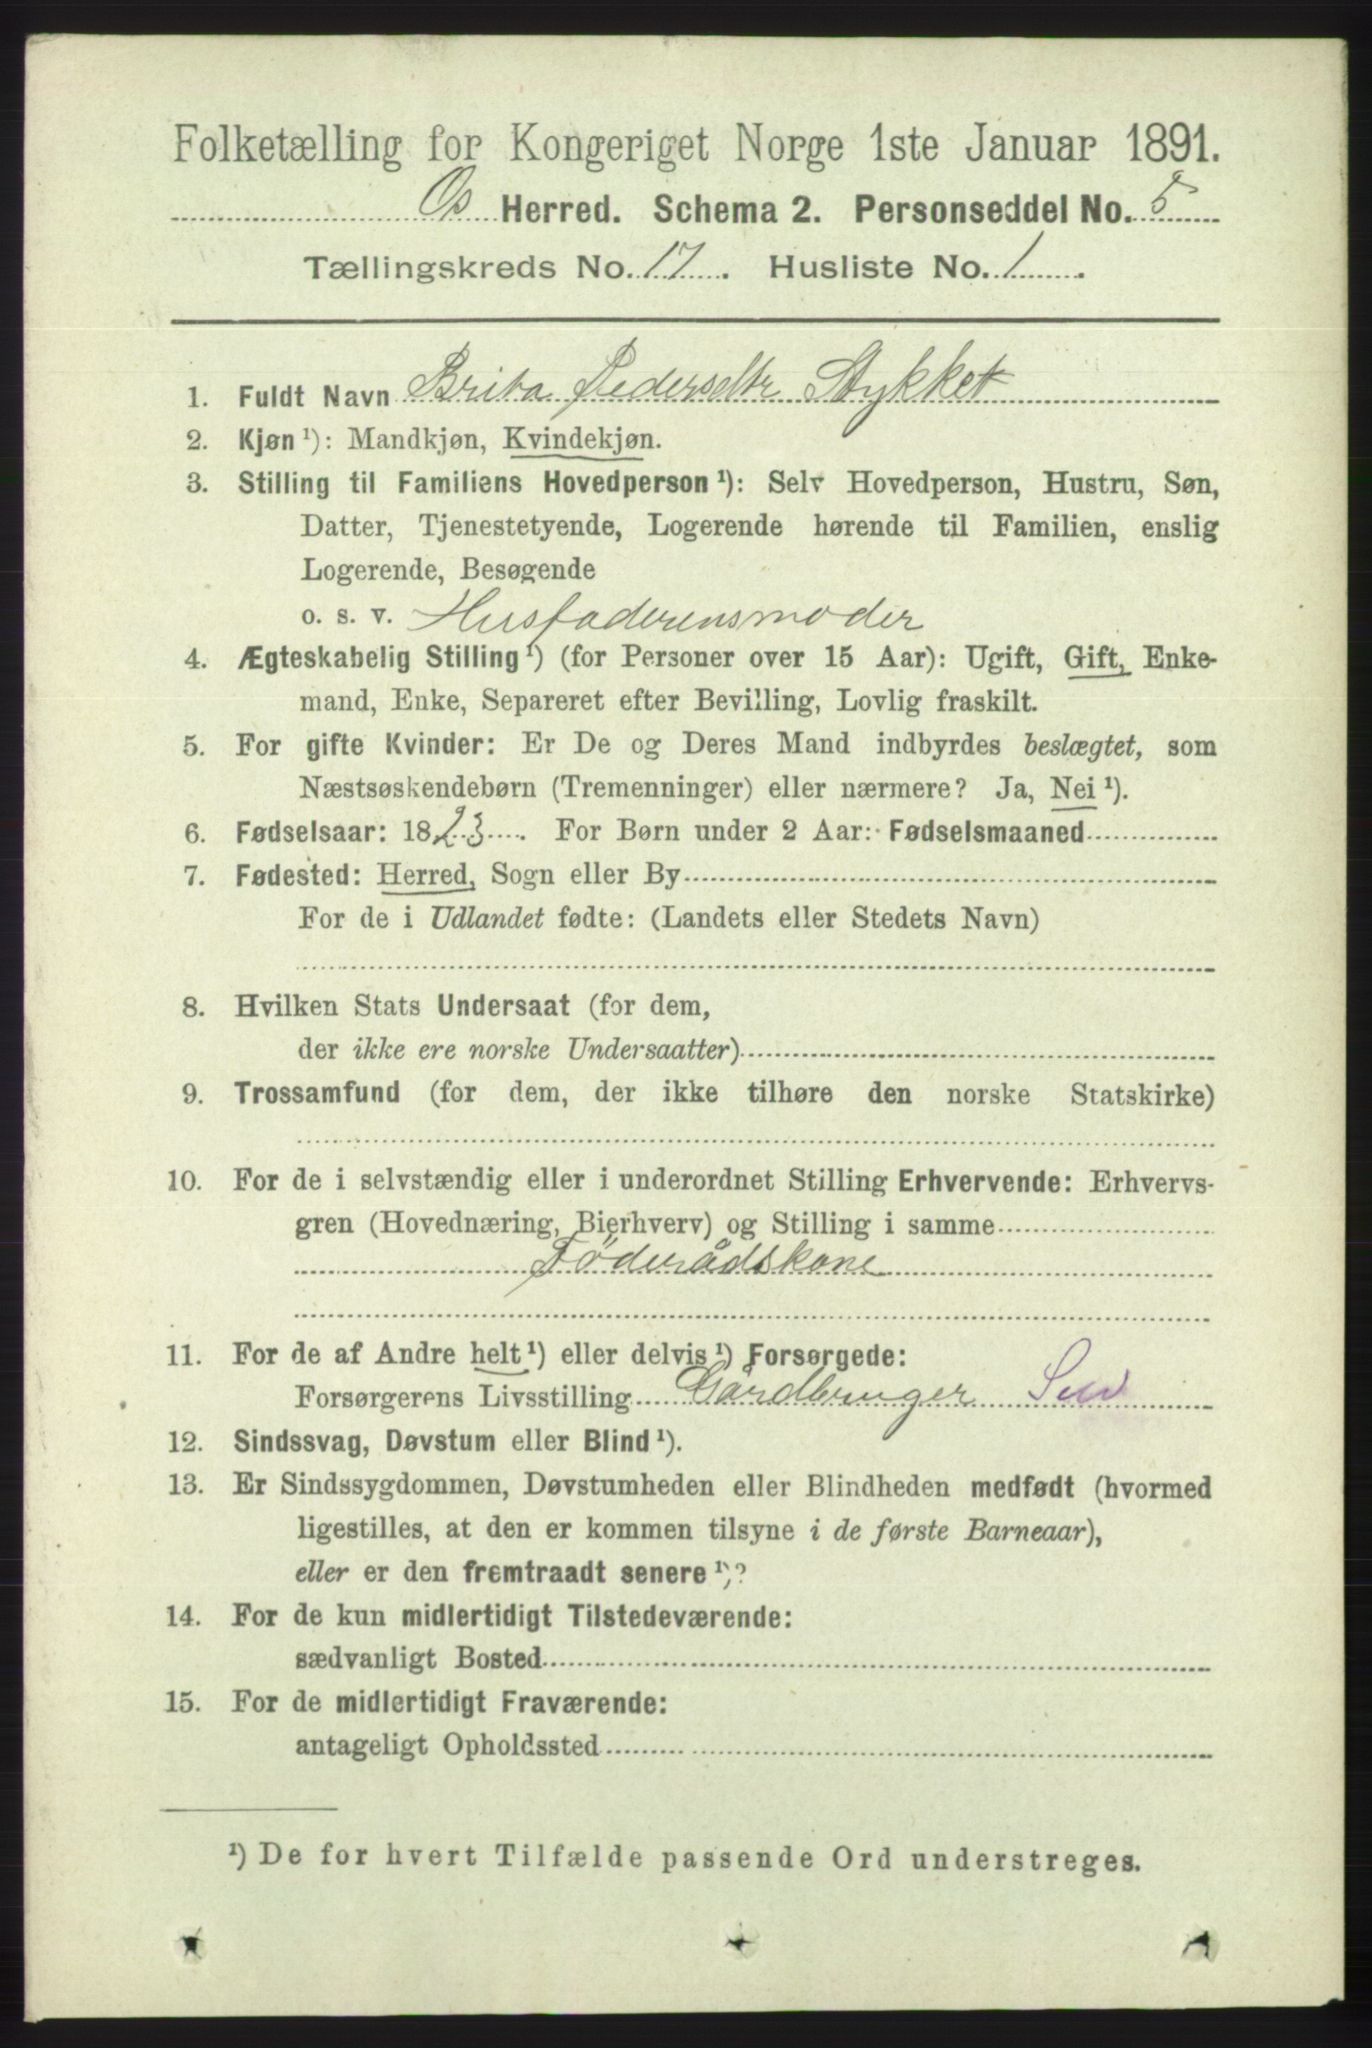 Folketælling for Kongeriget Norge 1ste Januar 1891.
Os Herred. Schema 2. Personseddel No. 5
Tællingskreds No. 17. Husliste No. 1.
1. Fuldt Navn Brita Pedersdtr Stykket
2. Kjøn ¹): Mandkjøn, Kvindekjøn.
3. Stilling til Familiens Hovedperson ¹): Selv Hovedperson, Hustru, Søn,
Datter, Tjenestetyende, Logerende hørende til Familien, enslig
Logerende, Besøgende
o. s. v. Husfaderensmoder
4. Ægteskabelig Stilling ¹) (for Personer over 15 Aar): Ugift, Gift, Enke-
mand, Enke, Separeret efter Bevilling, Lovlig fraskilt.
5. For gifte Kvinder: Er De og Deres Mand indbyrdes beslægtet, som
Næstsøskendebørn (Tremenninger) eller nærmere? Ja, Nei ¹).
6. Fødselsaar: 1823. For Børn under 2 Aar: Fødselsmaaned
7. Fødested: Herred, Sogn eller By
For de i Udlandet fødte: (Landets eller Stedets Navn)
8. Hvilken Stats Undersaat (for dem,
der ikke ere norske Undersaatter)
9. Trossamfund (for dem, der ikke tilhøre den norske Statskirke)
10. For de i selvstændig eller i underordnet Stilling Erhvervende: Erhvervs-
gren (Hovednæring, Bierhverv) og Stilling i samme
Föderådskone
11. For de af Andre helt ¹) eller delvis ¹) Forsørgede:
Forsørgerens Livsstilling Gårdbruger
12. Sindssvag, Døvstum eller Blind ¹).
13. Er Sindssygdommen, Døvstumheden eller Blindheden medfødt (hvormed
ligestilles, at den er kommen tilsyne i de første Barneaar),
eller er den fremtraadt senere ¹)?
14. For de kun midlertidigt Tilstedeværende:
sædvanligt Bosted
15. For de midlertidigt Fraværende:
antageligt Opholdssted
¹) De for hvert Tilfælde passende Ord understreges.